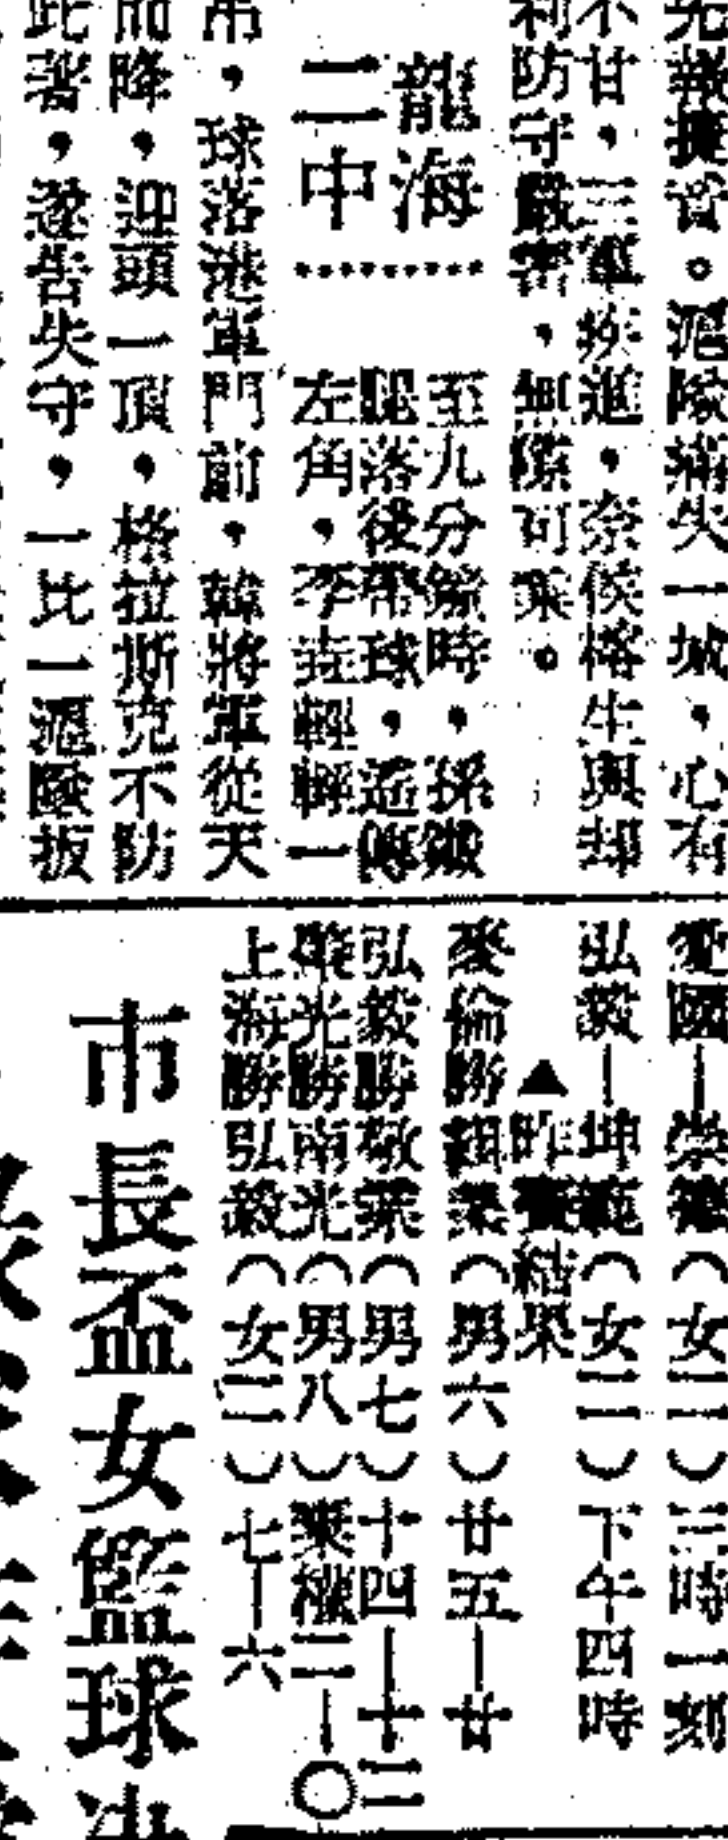 先報捷音。滬隊痛失一城，心有
不甘，三軍疾進，奈侯榕生與却
利防守嚴密，無隙可乘。
龍海
二中
至九分鐘時，孫
腿落後帶球，遥傳
左角，李垚輕輕一
吊，球落港軍門前，韓將軍從天
而降，迎頭一頂，格拉斯克不防
此著，遂告失守，一比一滬隊扳
愛國—崇德（女二）三時一刻
弘毅—坤範（女二）下午四時
▲昨賽結果
麥倫勝（男六）廿五—廿
弘毅勝敬業（男七）十四—十二
光勝南光（男八）棄權二—〇
上海勝弘毅（女二）七—六
市長盃女籃球决